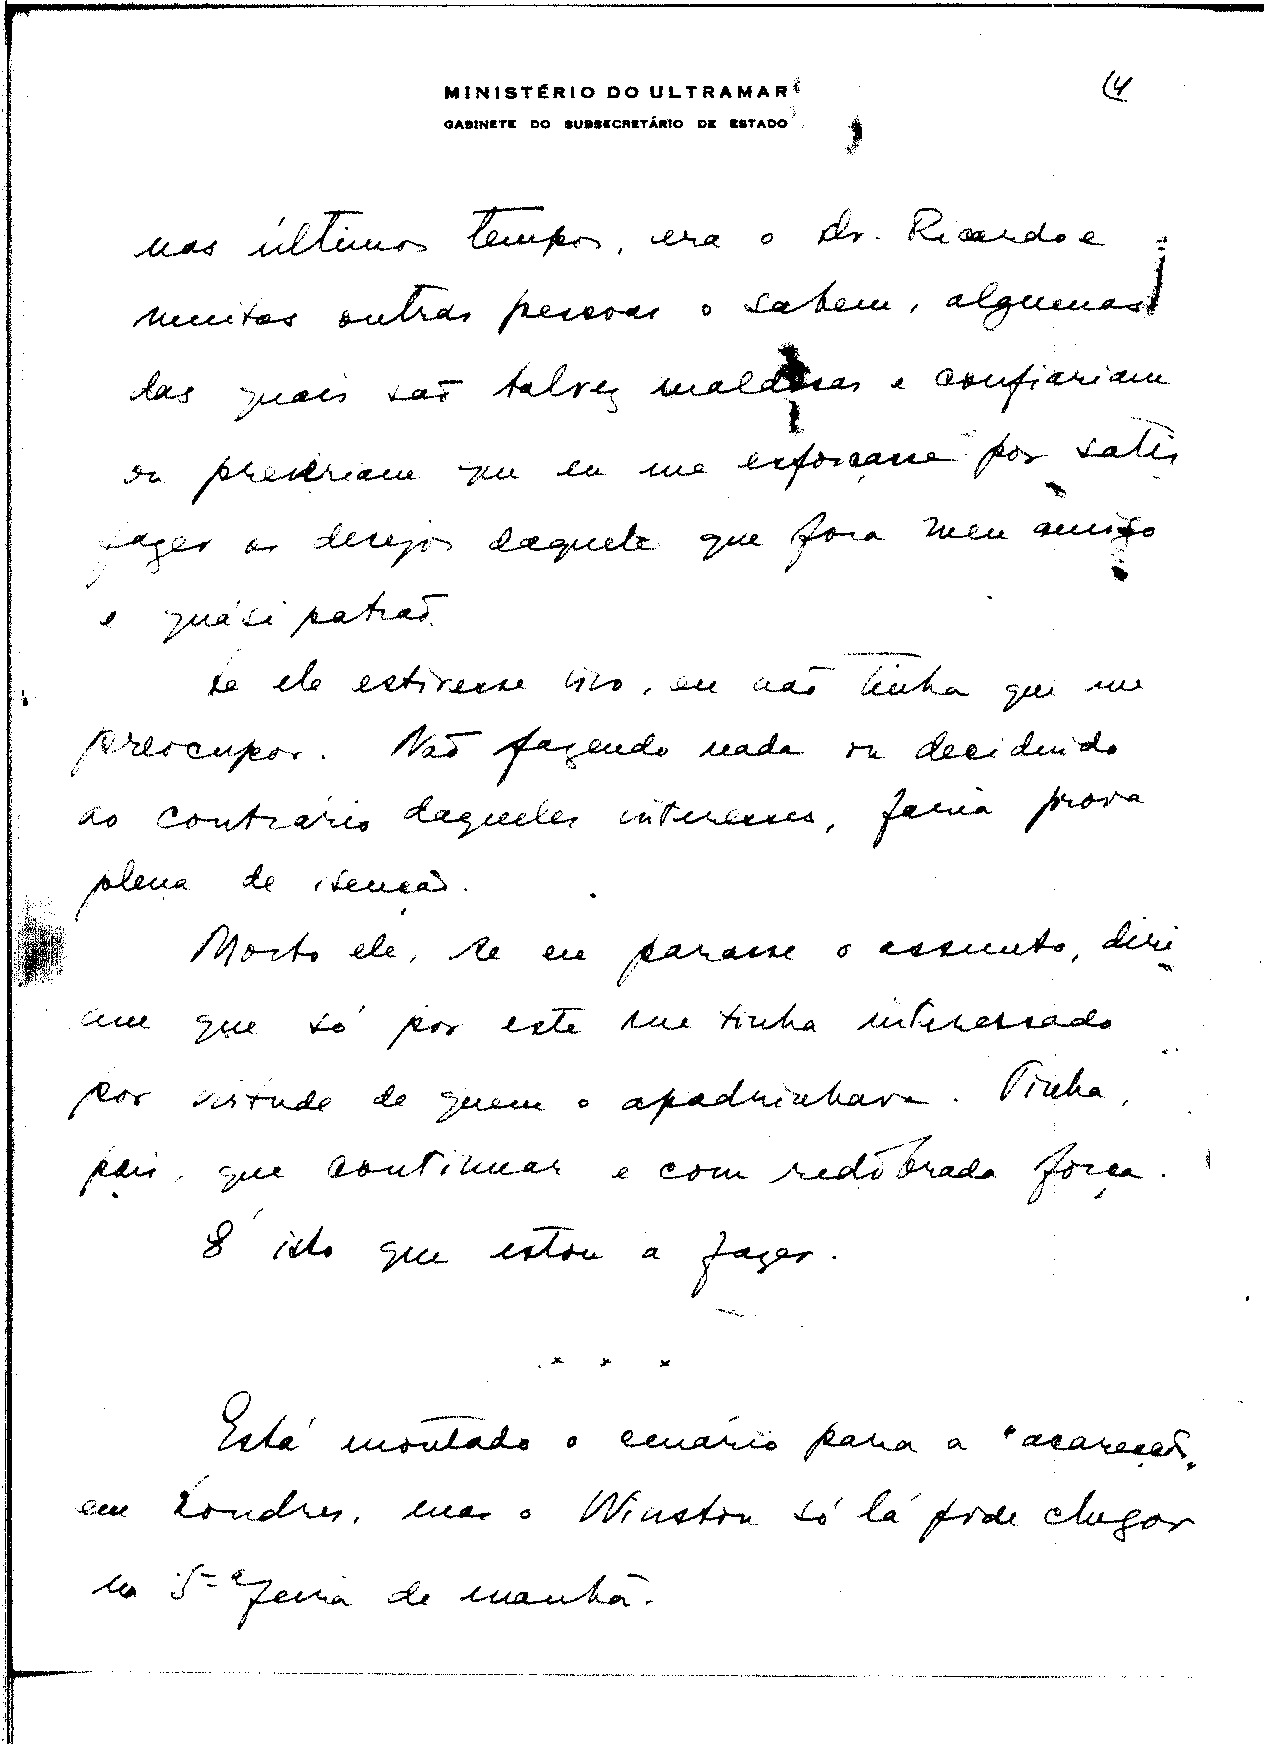 MINISTÉRIO DO ULTRAMAR
GABINETE DO SUBSECRETÁRIO DE ESTADO
(4
nos últimos tempos, era o Dr. Ricardo e
muitas outras pessoas o sabem, algumas
das quais são talvez maldosas e confiariam
ou que eu me esforçasse por satis
fazer os desejos daquele que fora meu amigo
e quási patrão.
Se ele estivesse vivo, eu não tinha que me
preocupar. Não fazendo nada ou decidindo
ao contrário daqueles interesses, faria prova
plena de isenção.
Morto ele, se eu parasse o assunto, diri
am que só por este me tinha interessado
por virtude de quem o apadrinhava. Tinha,
pois, que continuar e com redobrada força.
É isto que estou a fazer.
* * *
Está montado o cenário para a "acareação"
em Londres, mas o Winston só lá pode chegar
na 5ª feira de manhã.